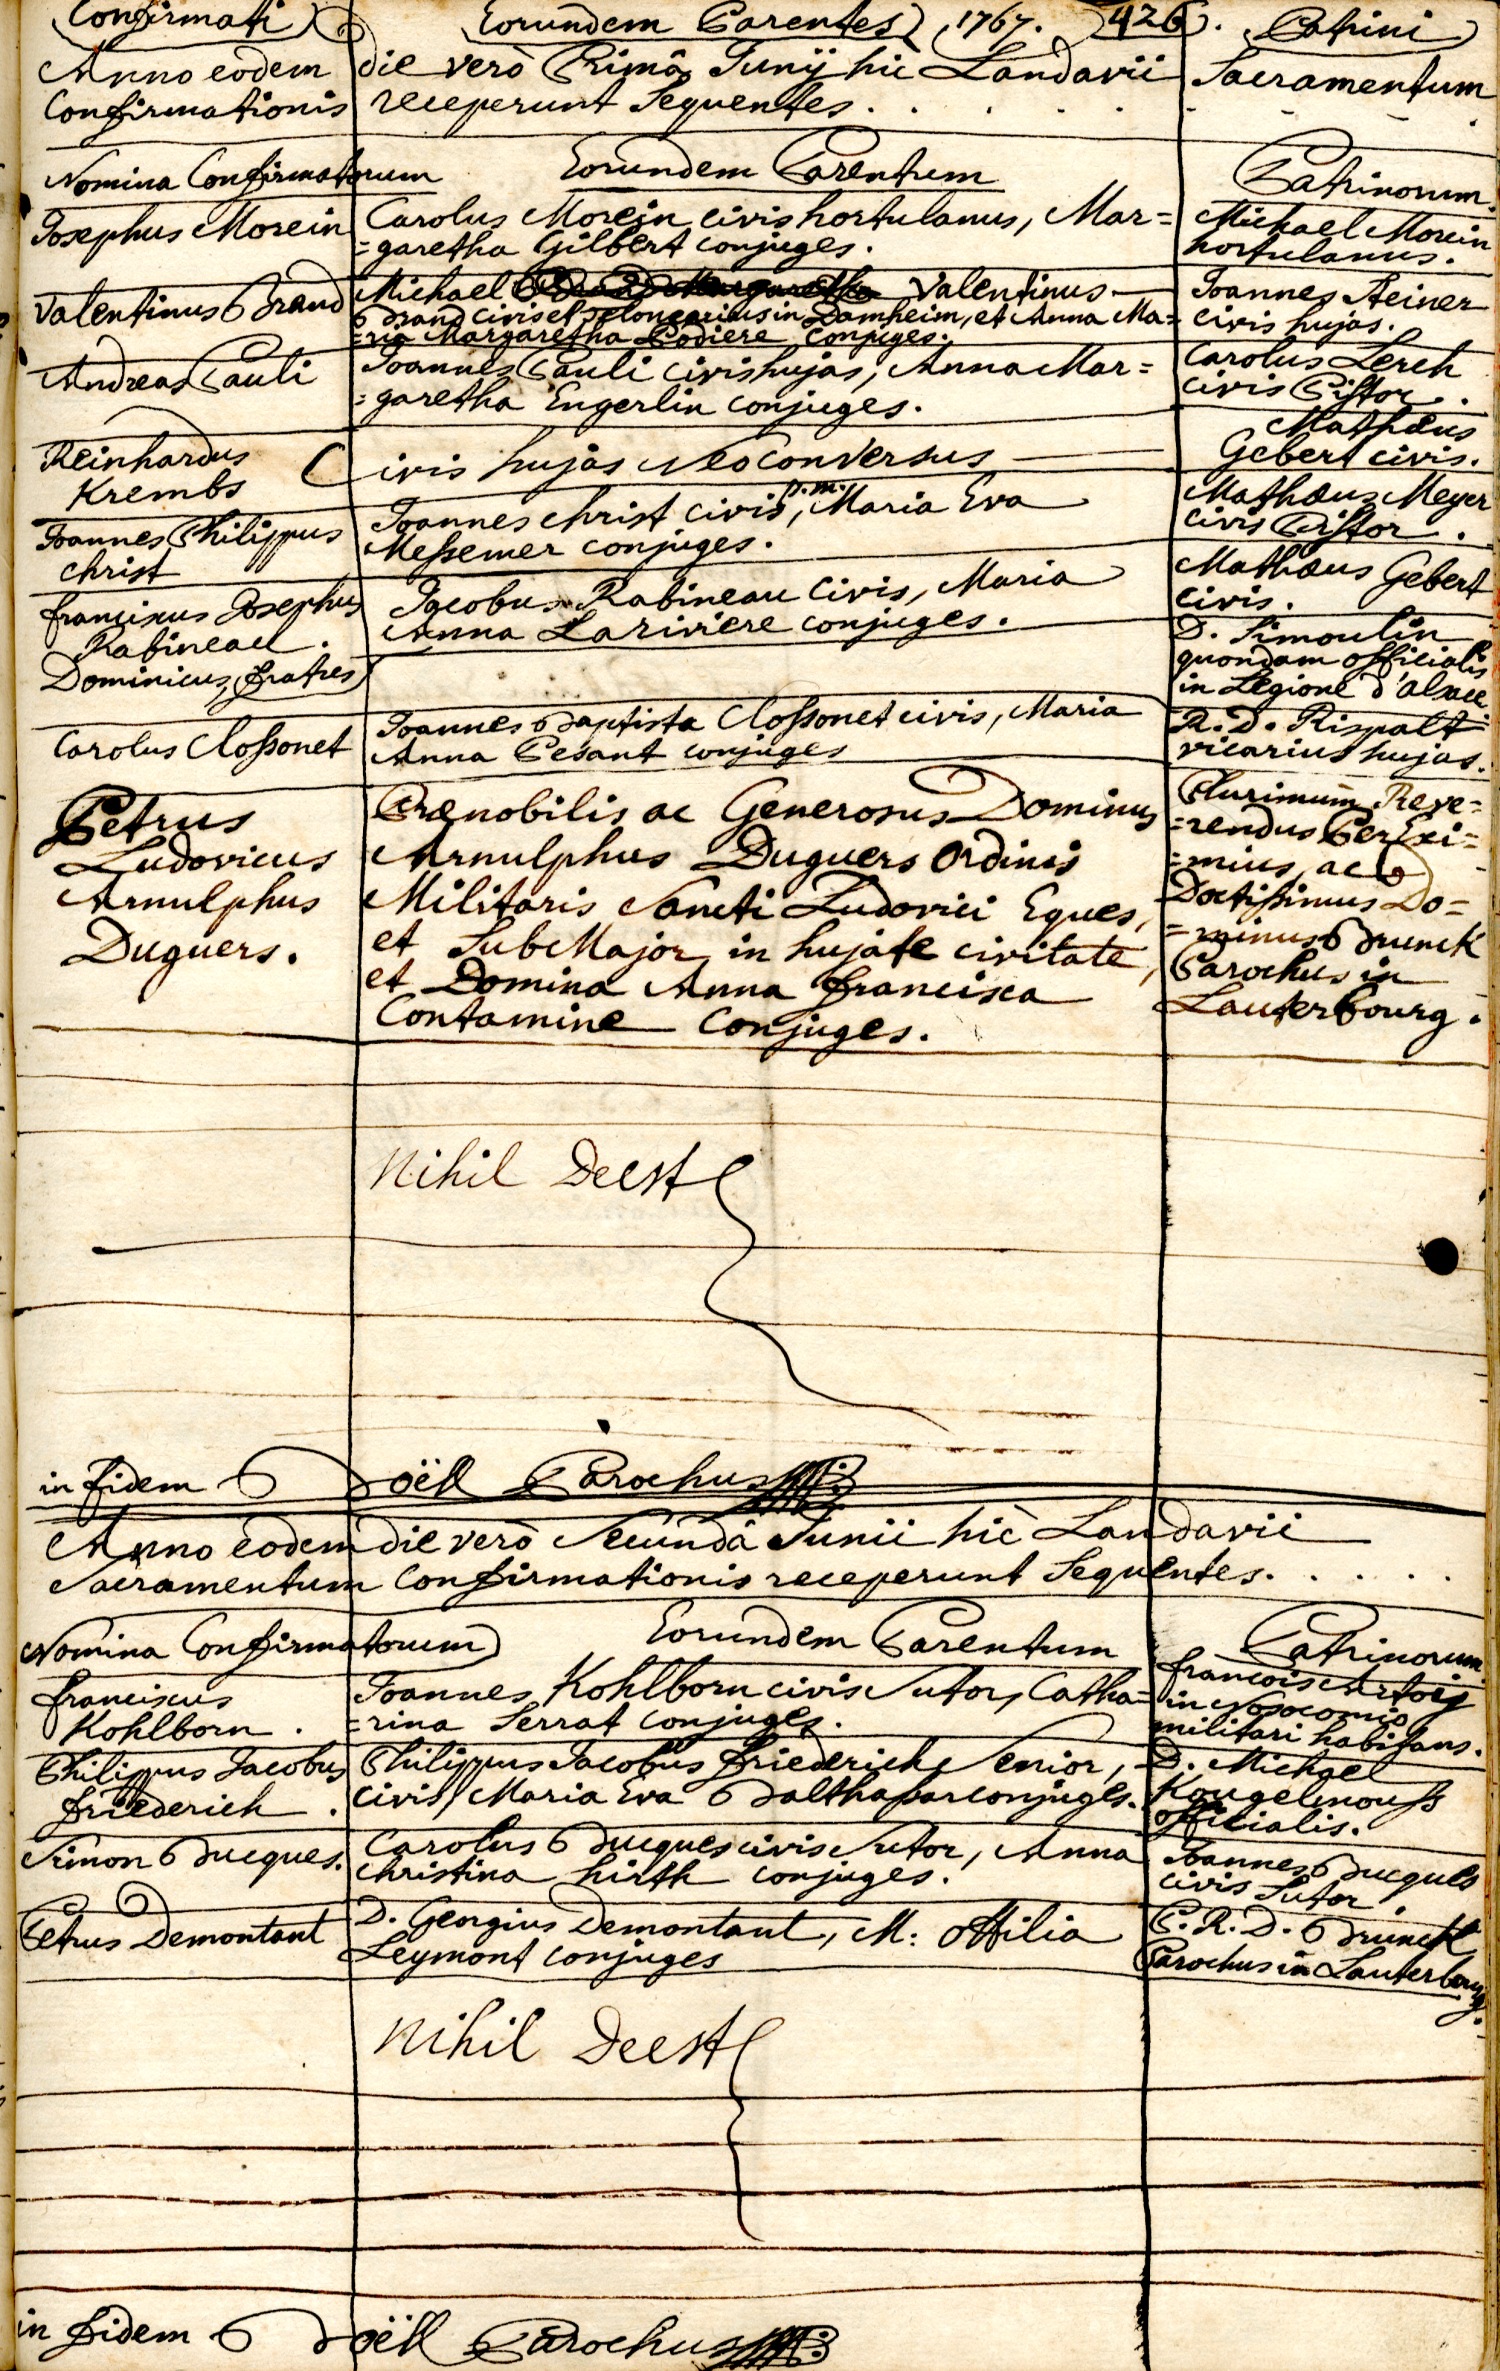 Confirmati Eorundem Parentes 1767. 426. Patrini
Anno eodem die verò Primâ Junÿ hic Landavii Sacramentum
Confirmationis receperunt Sequentes . . . . . . .
Nomina Confirmatorum Eorundem Parentum Patrinorum.
Josephus Morein
Carolus Morein civis hortulanus, Mar=
=garetha Gilbert conjuges.
Michael Morein
hortulanus.
Valentinus Brand
Michael Valentinus
Brand civis et in Damheim, et Anna Ma=
=ria Margaretha Podiere conjuges.
Joannes Steiner
civis hujas.
Andreas Pauli
Joannes Pauli civis hujas, Anna Mar=
=garetha Engerlin conjuges.
Carolus Lerch
civis Pistor.
Reinhardus
Krembs
Civis hujas Neoconversus
Mathæus
Gebert civis.
Joannes Philippus
Christ
Joannes Christ civis p.m., Maria Eva
Messemer conjuges.
Mathæus Meyer
civis Pistor.
franciscus Josephus
Rabineau.
Dominicus, fratres
Jacobus Rabineau Civis, Maria
Anna Lariviere conjuges.
Mathæus Gebert
civis.
D. Simoulin
quondam officialis
in Legione d'alsace.
Carolus Clossonet
Joannes Baptista Clossonet civis, Maria
Anna Pesant conjuges
R. D. Rispalt
vicarius hujas.
Petrus
Ludovicus
Arnulphus
Duguers.
Prænobilis ac Generosus Dominus
Arnulphus Duguers Ordinis
Militaris Sancti Ludovici Eques,
et SubMajor in hujate civitate,
et Domina Anna francisca
Contamine Conjuges.
Plurimum Reve=
=rendus Per Exi=
=mius, ac
Doctissimus Do=
=minus Brunck
Parochus in
Lauterbourg.
Nihil Deest
in fidem Doëll Parochus
Anno eodem die verò Secundâ Junii hic Landavii
Sacramentum Confirmationis receperunt Sequentes. . . . . .
Nomina Confirmatorum Eorundem Parentum Patrinorum
franciscus
Kohlborn.
Joannes Kohlborn civis Sutor, Catha=
=rina Serrat conjuges.
francois Artois
in Nosocomio
militari habitans.
Philippus Jacobus
friederich.
Philippus Jacobus friederich Senior,
civis, Maria Eva Balthasar conjuges.
D. Michael
Kougelmouss
officialis.
Simon Bucques.
Carolus Bucques civis Sutor, Anna
Christina hirth conjuges.
Joannes Bucques
civis Sutor.
Petrus Demontant
D. Georgius Demontant, M: Ottilia
Leymont conjuges
P. R. D. Brunck
Parochus in Lauterbourg.
Nihil Deest
in fidem Doëll Parochus